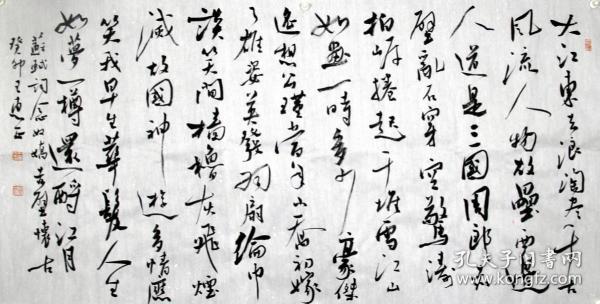 大江東去浪淘尽千古
風流人物故壘西邊
人道是三國周郎赤
壁亂石穿空驚濤
拍岸捲起千堆雪江山
如畫一時多少豪傑
遥想公瑾當年小喬初嫁
了雄姿英發羽扇綸巾
談笑間檣櫓灰飛煙
滅故國神遊多情應
笑我早生華髮人生
如夢一樽還酹江月
蘇軾詞念奴嬌赤壁懷古
癸卯王
孔夫子旧书网